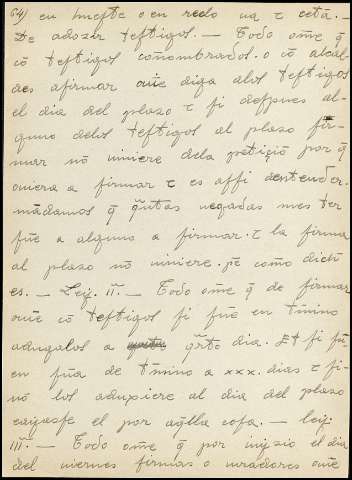 64) en hueste o en redo ua τ cetā. —
De adozir teſtigos. — Todo om̄e q̄
cō teſtigos cōnombrados. o cō alcal-
des afirmar oūe diga alos teſtigos
el dia del plazo τ ſi deſpues al-
guno delos teſtigos al plazo fir-
mar nō uiniere dela petiçiō por q̄
ouiera a firmar τ es aſſi dentender.
mādamos q̄ q̄ntas uegadas mester
fūe a alguno a firmar. τ la firma
al plazo nō uiniere. pē como dich
es. — Ley. II. — Todo om̄e q̄ de firmar
oūe cō teſtigos ſi fūe en t̄mino
adugalos a q̄rto dia. Et ſi fū-
en fūa de t̄mino a xxx. dias τ ſi
nō los aduxiere al dia del plazo
cayaſſe el por aq̄lla coſa. — ley
III. — Todo om̄e q̄ por iuyzio el dia
del uiernes firmas o iuradores oūe